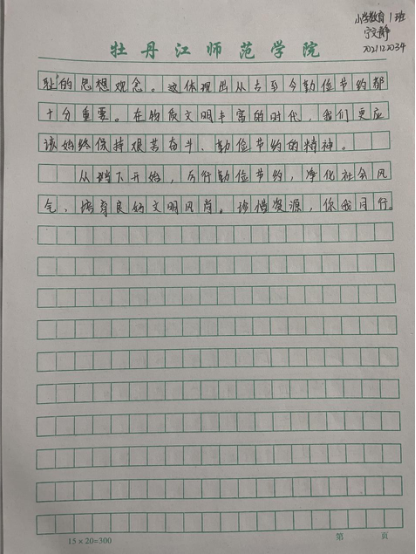 小学教育1班
宁文静
2021122034
牡丹江师范学院
耻"的思想观念。这体现出从古至今勤俭节约都
十分重要。在物质文明丰富的时代,我们更应
该始终保持艰苦奋斗、勤俭节约的精神。
从当下开始,厉行勤俭节约,净化社会风
气,培养良好文明风尚。珍惜资源,你我同行。
15×20=300
第 页